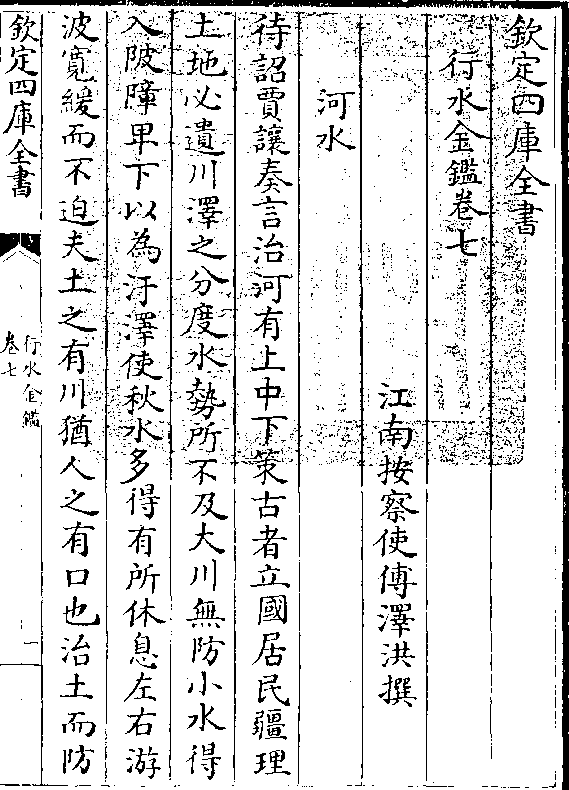 欽定四庫全書
行水金鑑卷七
江南按察使傅澤洪撰
河水
待詔賈讓奏言治河有上中下策古者立國居民疆理
土地必遺川澤之分度水勢所不及大川無防小水得
入陂障卑下以為汙澤使秋水多得有所休息左右游
波寬緩而不迫夫土之有川猶人之有口也治土而防
欽定四庫全書
行水金鑑
卷七
一